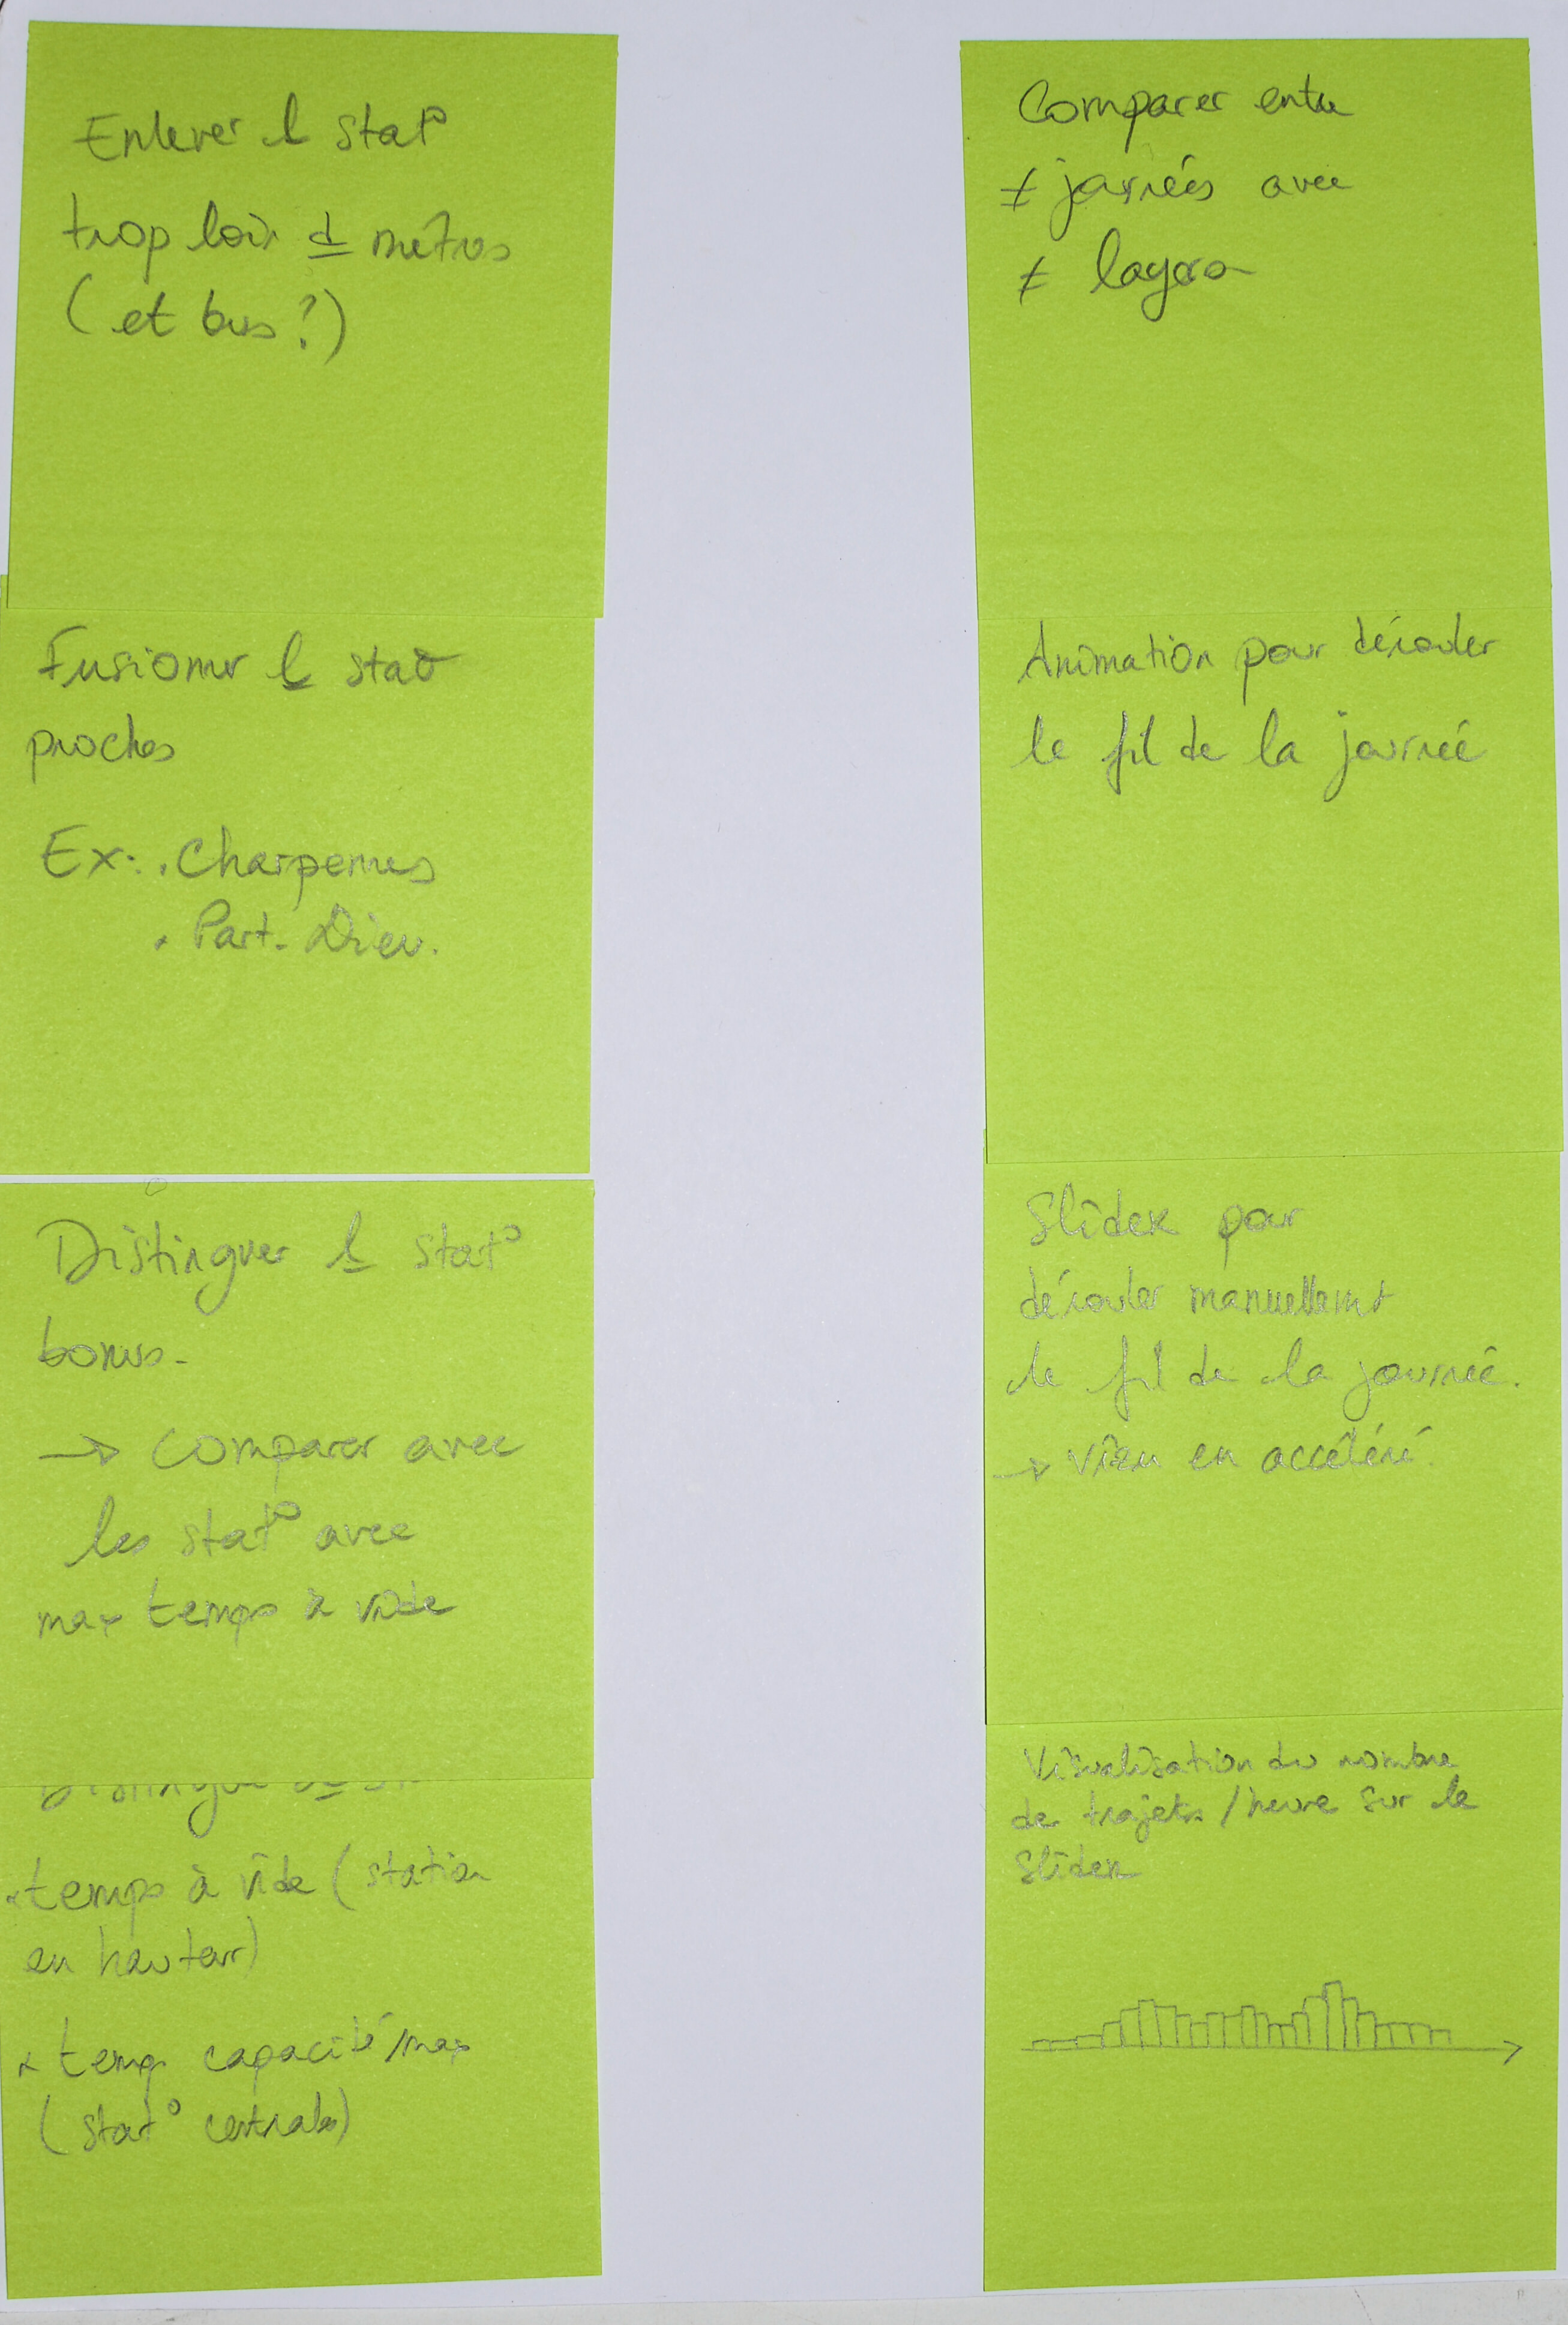 Enlever l stat°
trop loin d métros
(et bus ?)
Fusionner l stat°
proches
Ex: . Charpennes
. Part-Dieu.
Distinguer l stat°
bonus.
→ comparer avec
les stat° avec
max temps à vide
Distinguer
temps à vide (station
en hauteur)
temp capacité max
(stat° centrales)
Comparer entre
≠ journées avec
≠ layers
Animation pour dérouler
le fil de la journée
Slider pour
dérouler manuellement
le fil de la journée.
→ view en accéléré.
Visualisation du nombre
de trajets / heure sur le
slider